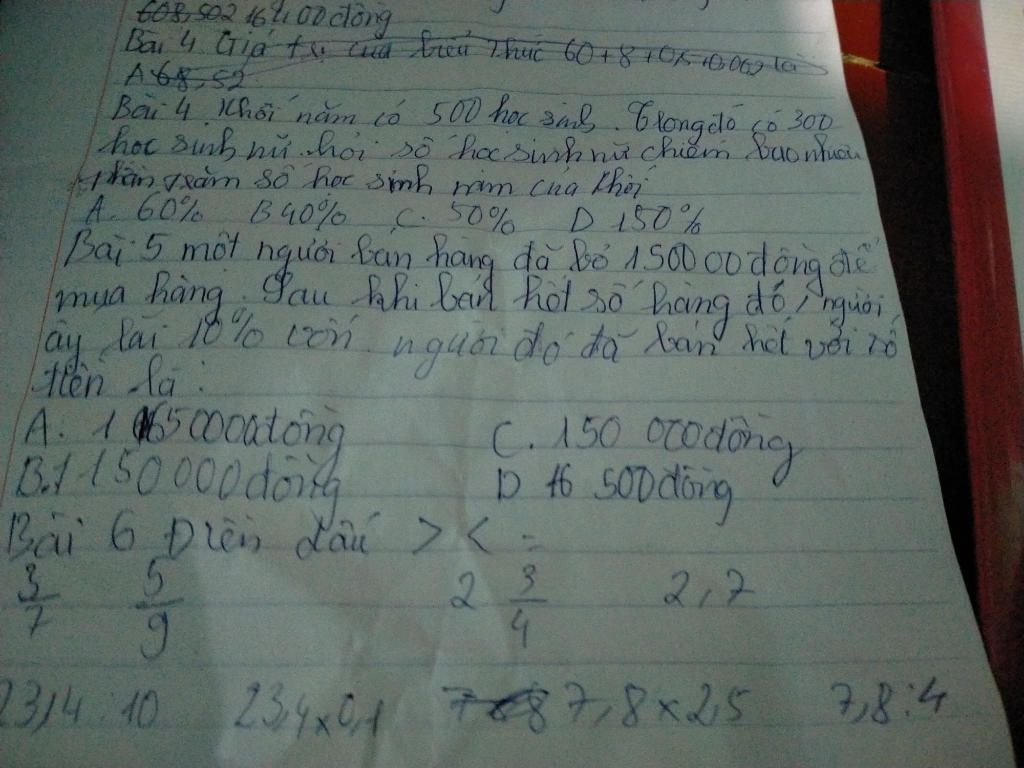 608,502 164,00 đồng
Bài 4 Giá trị của biểu thức 60+8+0,5+0,002 là
A 68,52
Bài 4. Khối năm có 500 học sinh. Trong đó có 300
học sinh nữ. hỏi số học sinh nữ chiếm bao nhiêu
phần trăm số học sinh năm của khối
A. 60% B 40% C. 50% D 150%
Bài 5 một người bán hàng đã bỏ 1500000 đồng để
mua hàng. Sau khi bán hết số hàng đó, người
ấy lãi 10% vốn. người đó đã bán hết với số
tiền là:
A. 1 65 0000 đồng C. 150 000 đồng
B. 1 150 000 đồng D 16 500 đồng
Bài 6 Điền dấu > < =
3/7 5/9 2 3/4 2,7
23,4 : 10 23,4 x 0,1 7,8 x 2,5 7,8 : 4